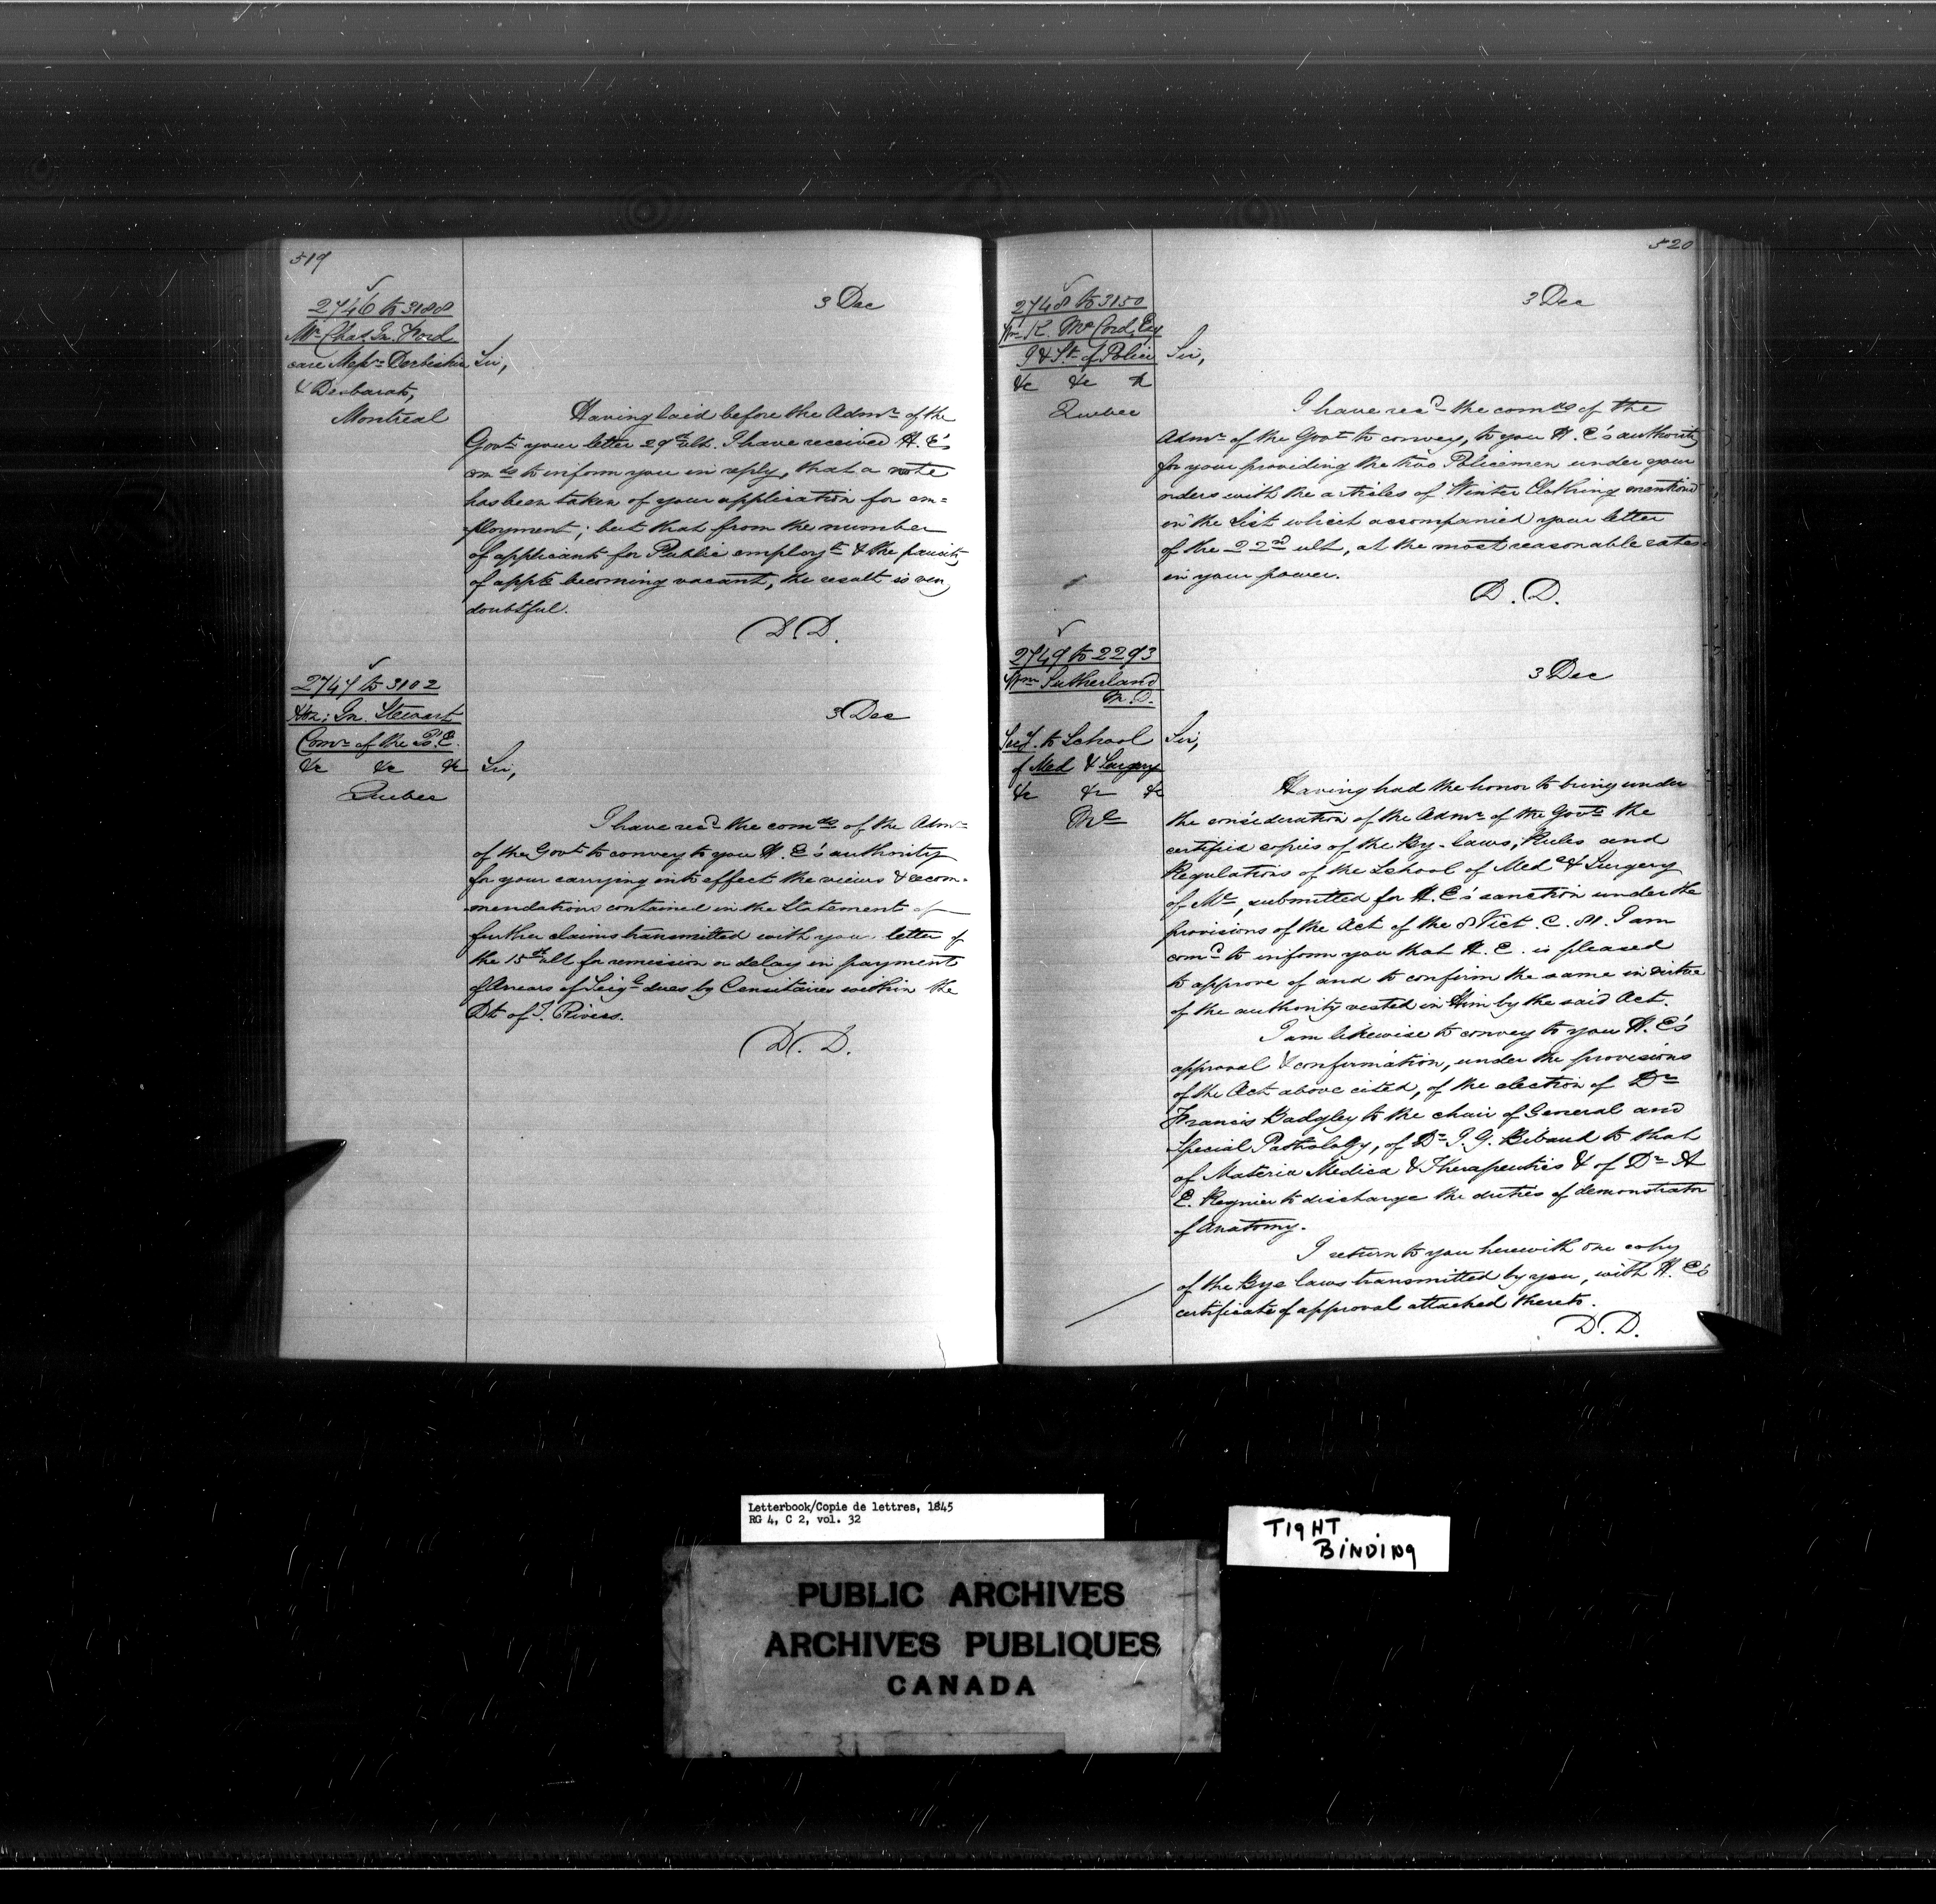 519
2746 to 3188
Mr Chas Jn. Ford
care Messrs Derbishire
& Desbarats,
Montreal
3 Dec
Sir,
Having laid before the Admr of the
Govt your letter 29th ult. I have received H. E's
comds to inform you in reply, that a note
has been taken of your application for em=
=ployment; but that from the number
of applicants for Public employt & the paucity
of appts becoming vacant, the result is very
doubtful.
D. D.
2747 to 3102
Hon: Jn. Stewart
Comr of the J. E.
&c &c &c
Quebec
3 Dec
Sir,
I have recd the comds of the Admr
of the Govt to convey to you H. E's authority
for your carrying into effect the views & recom-
mendations contained in the Statement of
further claims transmitted with your letter of
the 15th ult for remission or delay in payment
of Arrears of Seigl dues by Censitaires within the
Dt of T. Rivers.
D. D.
520
2748 to 3150
Wm K. McCord, Esq
I & St of Police
&c &c &c
Quebec
3 Dec
Sir,
I have recd the comds of the
Admr of the Govt to convey, to you H. E's authority
for your providing the two Policemen under your
orders with the articles of Winter Clothing mentioned
in the List which accompanied your letter
of the 22nd ult, at the most reasonable rates
in your power.
D. D.
2749 to 2293
Wm Sutherland
M. D.
Secy. to School
of Med & Surgery
&c &c &c
Ml
3 Dec
Sir,
Having had the honor to bring under
the consideration of the Admr of the Govt the
certified copies of the By-laws, Rules and
Regulations of the School of Med & Surgery
of Ml, submitted for H. E's sanction under the
provisions of the Act of the 8 Vict. C. 81. I am
comd to inform you that H. E. is pleased
to approve of and to confirm the same in virtue
of the authority vested in Him by the said Act.
I am likewise to convey to you H. E's
approval & confirmation, under the provisions
of the Act above cited, of the election of Dr
Francis Badgley to the chair of General and
Special Pathology, of Dr J. G. Bibaud to that
of Materia Medica & Therapeutics & of Dr A
E. Regnier to discharge the duties of demonstrator
of Anatomy.
I return to you herewith one copy
of the Bye laws transmitted by you, with H. E's
certificate of approval attached thereto.
D. D.
Letterbook/Copie de lettres, 1845
RG 4, C 2, vol. 32
TIGHT
BINDING
PUBLIC ARCHIVES
ARCHIVES PUBLIQUES
CANADA